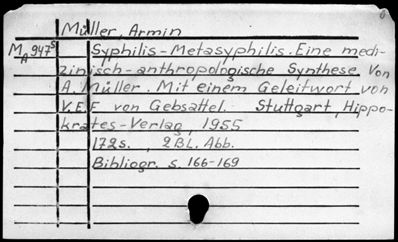 Müller, Armin
M_A 947⁵ Syphilis-Metasyphilis. Eine medi-
zinisch-anthropologische Synthese. Von
A. Müller. Mit einem Geleitwort von
V. E. F von Gebsattel. Stuttgart, Hippo-
krates-Verlag, 1955
172s., 2 Bl. Abb.
Bibliogr. s. 166-169